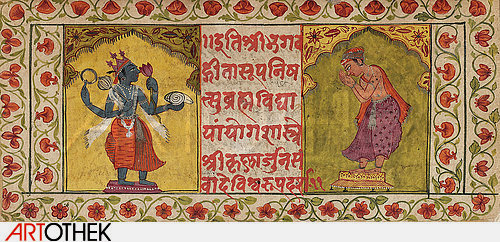 इतिश्रीभगव
द्गीतासूपनिष
त्सुब्रह्मविद्या
यांयोगशास्त्रे
श्रीकृष्णार्जुनसं
वादेविश्वरूप
ARTOTHEK